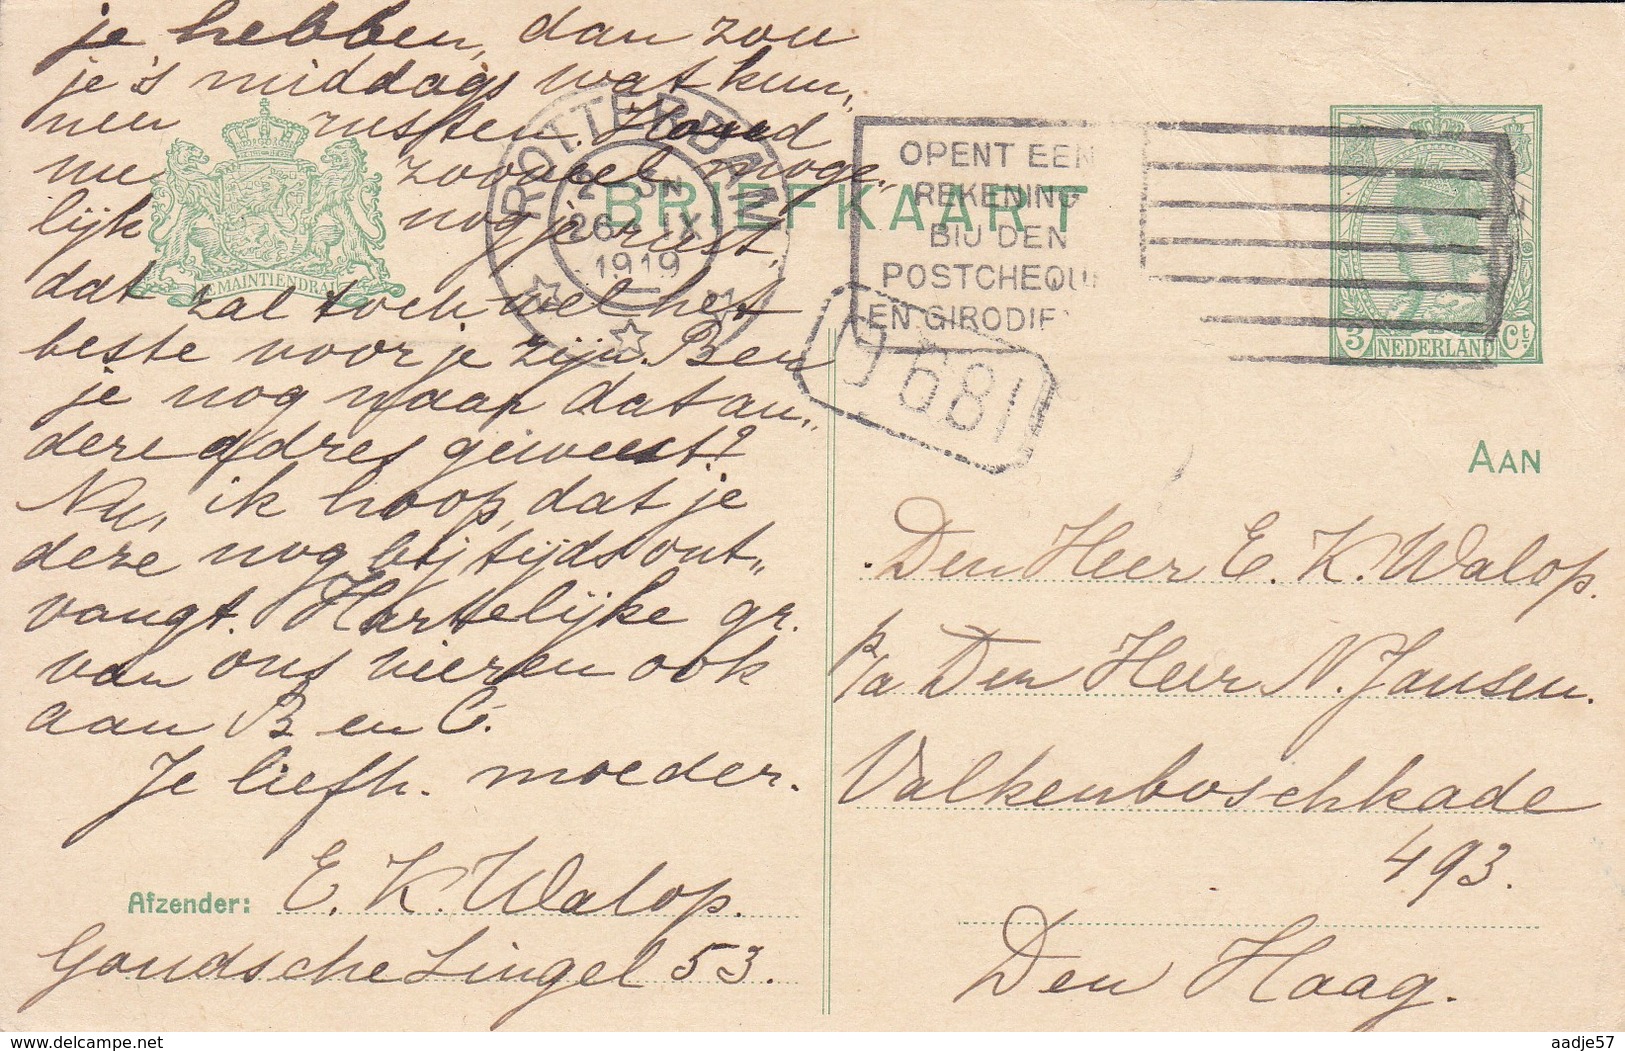 je hebben, dan zou
je 's middags wat kun„
nen rusten. Houd
nu zooveel moge„
lijk nog je rust,
dat zal toch wel het
beste voor je zijn. Ben
je nog naar dat an„
dere adres geweest?
Nu, ik hoop, dat je
deze nog bijtijds ont„
vangt. Hartelijke gr.
van ons vieren ook
aan B en C.
Je liefh. moeder.
Afzender: E. K. Walop.
Goudsche Singel 53.
JE MAINTIENDRAI
ROTTERDAM
26 IX
1919
BRIEFKAART
OPENT EEN
REKENING
BIJ DEN
POSTCHEQU
EN GIRODIE
681
3 NEDERLAND Ct
AAN
Den Heer E. K. Walop.
p/a Den Heer N. Jansen.
Valkenboschkade
493.
Den Haag.
aadje57